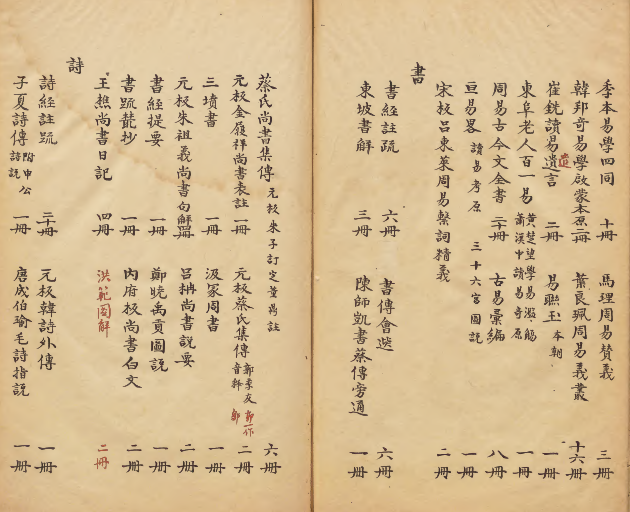 季本易學四同 十冊 馬理周易贊義 三冊
韓邦奇易學啟蒙本原 二冊 葉良珮周易義叢 十六冊
崔銑讀易遺言 二冊 易聯玉 本朝 一冊
東阜老人百一易 黃楚望學易濫觴 蕭漢中讀易考原 一冊
周易古今文全書 二十冊 古易彙編 八冊
亘易畧 讀易考原 三十六宮圖説 一冊
宋板呂東萊周易繫詞精義 二冊
書
書經註疏 六冊 書傳會選 六冊
東坡書解 三冊 陳師凱書蔡傳旁通 一冊
蔡氏尚書集傳 元板朱子訂定董鼎註 六冊
元板金履祥尚書表註 一冊 元板蔡氏集傳 鄒季友音釋 鄒一作鄭 二冊
三墳書 一冊 汲冢周書 一冊
元板朱祖義尚書句解 四冊 呂柟尚書説要 二冊
書經提要 一冊 鄭曉禹貢圖説 一冊
書疏叢抄 一冊 內府板尚書白文 二冊
王樵尚書日記 四冊 洪範圖解 二冊
詩
詩經註疏 二十冊 元板韓詩外傳 一冊
子夏詩傳 附申公詩説 一冊 唐成伯瑜毛詩指説 一冊